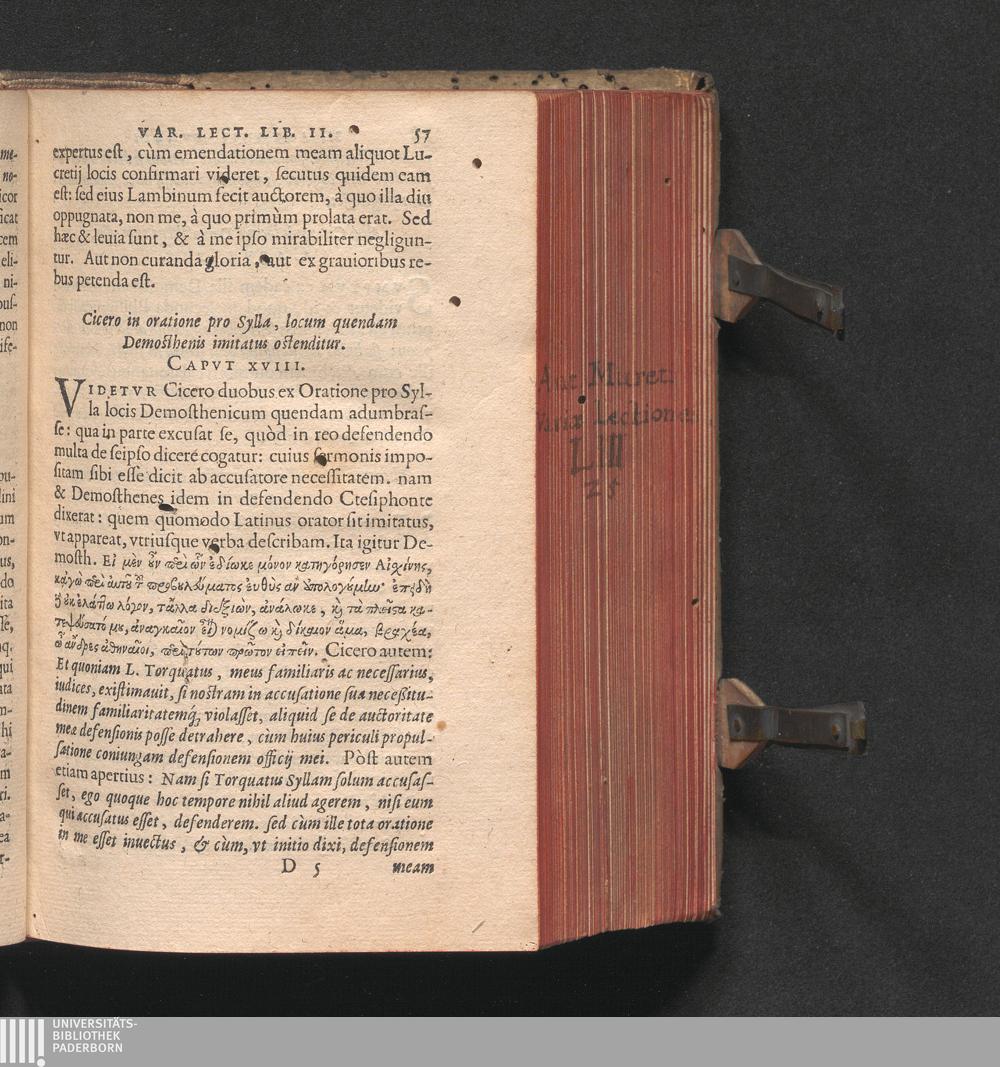 VAR. LECT. LIB. II. 57
expertus eſt, cùm emendationem meam aliquot Lu-
cretij locis confirmari videret, ſecutus quidem eam
eſt: ſed eius Lambinum fecit auctorem, à quo illa diu
oppugnata, non me, à quo primùm prolata erat. Sed
hæc & leuia ſunt, & à me ipſo mirabiliter negligun-
tur. Aut non curanda gloria, aut ex grauioribus re-
bus petenda eſt.
Cicero in oratione pro Sylla, locum quendam
Demoſthenis imitatus oſtenditur.
CAPVT XVIII.
VIDETVR Cicero duobus ex Oratione pro Syl-
la locis Demoſthenicum quendam adumbraſ-
ſe: qua in parte excuſat ſe, quòd in reo defendendo
multa de ſeipſo dicere cogatur: cuius ſermonis impo-
ſitam ſibi eſſe dicit ab accuſatore neceſſitatem. nam
& Demoſthenes idem in defendendo Cteſiphonte
dixerat: quem quomodo Latinus orator ſit imitatus,
vt appareat, vtriuſque verba deſcribam. Ita igitur De-
moſth. Εἰ μὲν οὖν περὶ ὧν ἐδίωκε μόνον κατηγόρησεν Αἰχίνης,
κἀγὼ περὶ αὐτοῦ τοῦ προβουλεύματος εὐθὺς ἂν ἀπολογούμην· ἐπειδὴ
δ' οὐκ ἐλάττω λόγον, τἆλλα διεξιὼν, ἀνάλωκε, καὶ τὰ πλεῖστα κα-
τεψεύσατό με, ἀναγκαῖον εἶναι νομίζω καὶ δίκαιον ἅμα, βραχέα,
ὦ ἄνδρες ἀθηναῖοι, περὶ τούτων πρῶτον εἰπεῖν. Cicero autem:
Et quoniam L. Torquatus, meus familiaris ac neceſſarius,
iudices, exiſtimauit, ſi noſtram in accuſatione ſua neceßitu-
dinem familiaritatemq́; violaſſet, aliquid ſe de auctoritate
meæ defenſionis poſſe detrahere, cum huius periculi propul-
ſatione coniungam defenſionem officij mei. Pòſt autem
etiam apertius: Nam ſi Torquatus Syllam ſolum accuſaſ-
ſet, ego quoque hoc tempore nihil aliud agerem, niſi eum
qui accuſatus eſſet, defenderem. ſed cùm ille tota oratione
in me eſſet inuectus, & cùm, vt initio dixi, defenſionem
D 5 meam
Ant. Muret.
Variæ Lectiones
LIII
25
UNIVERSITÄTS-
BIBLIOTHEK
PADERBORN